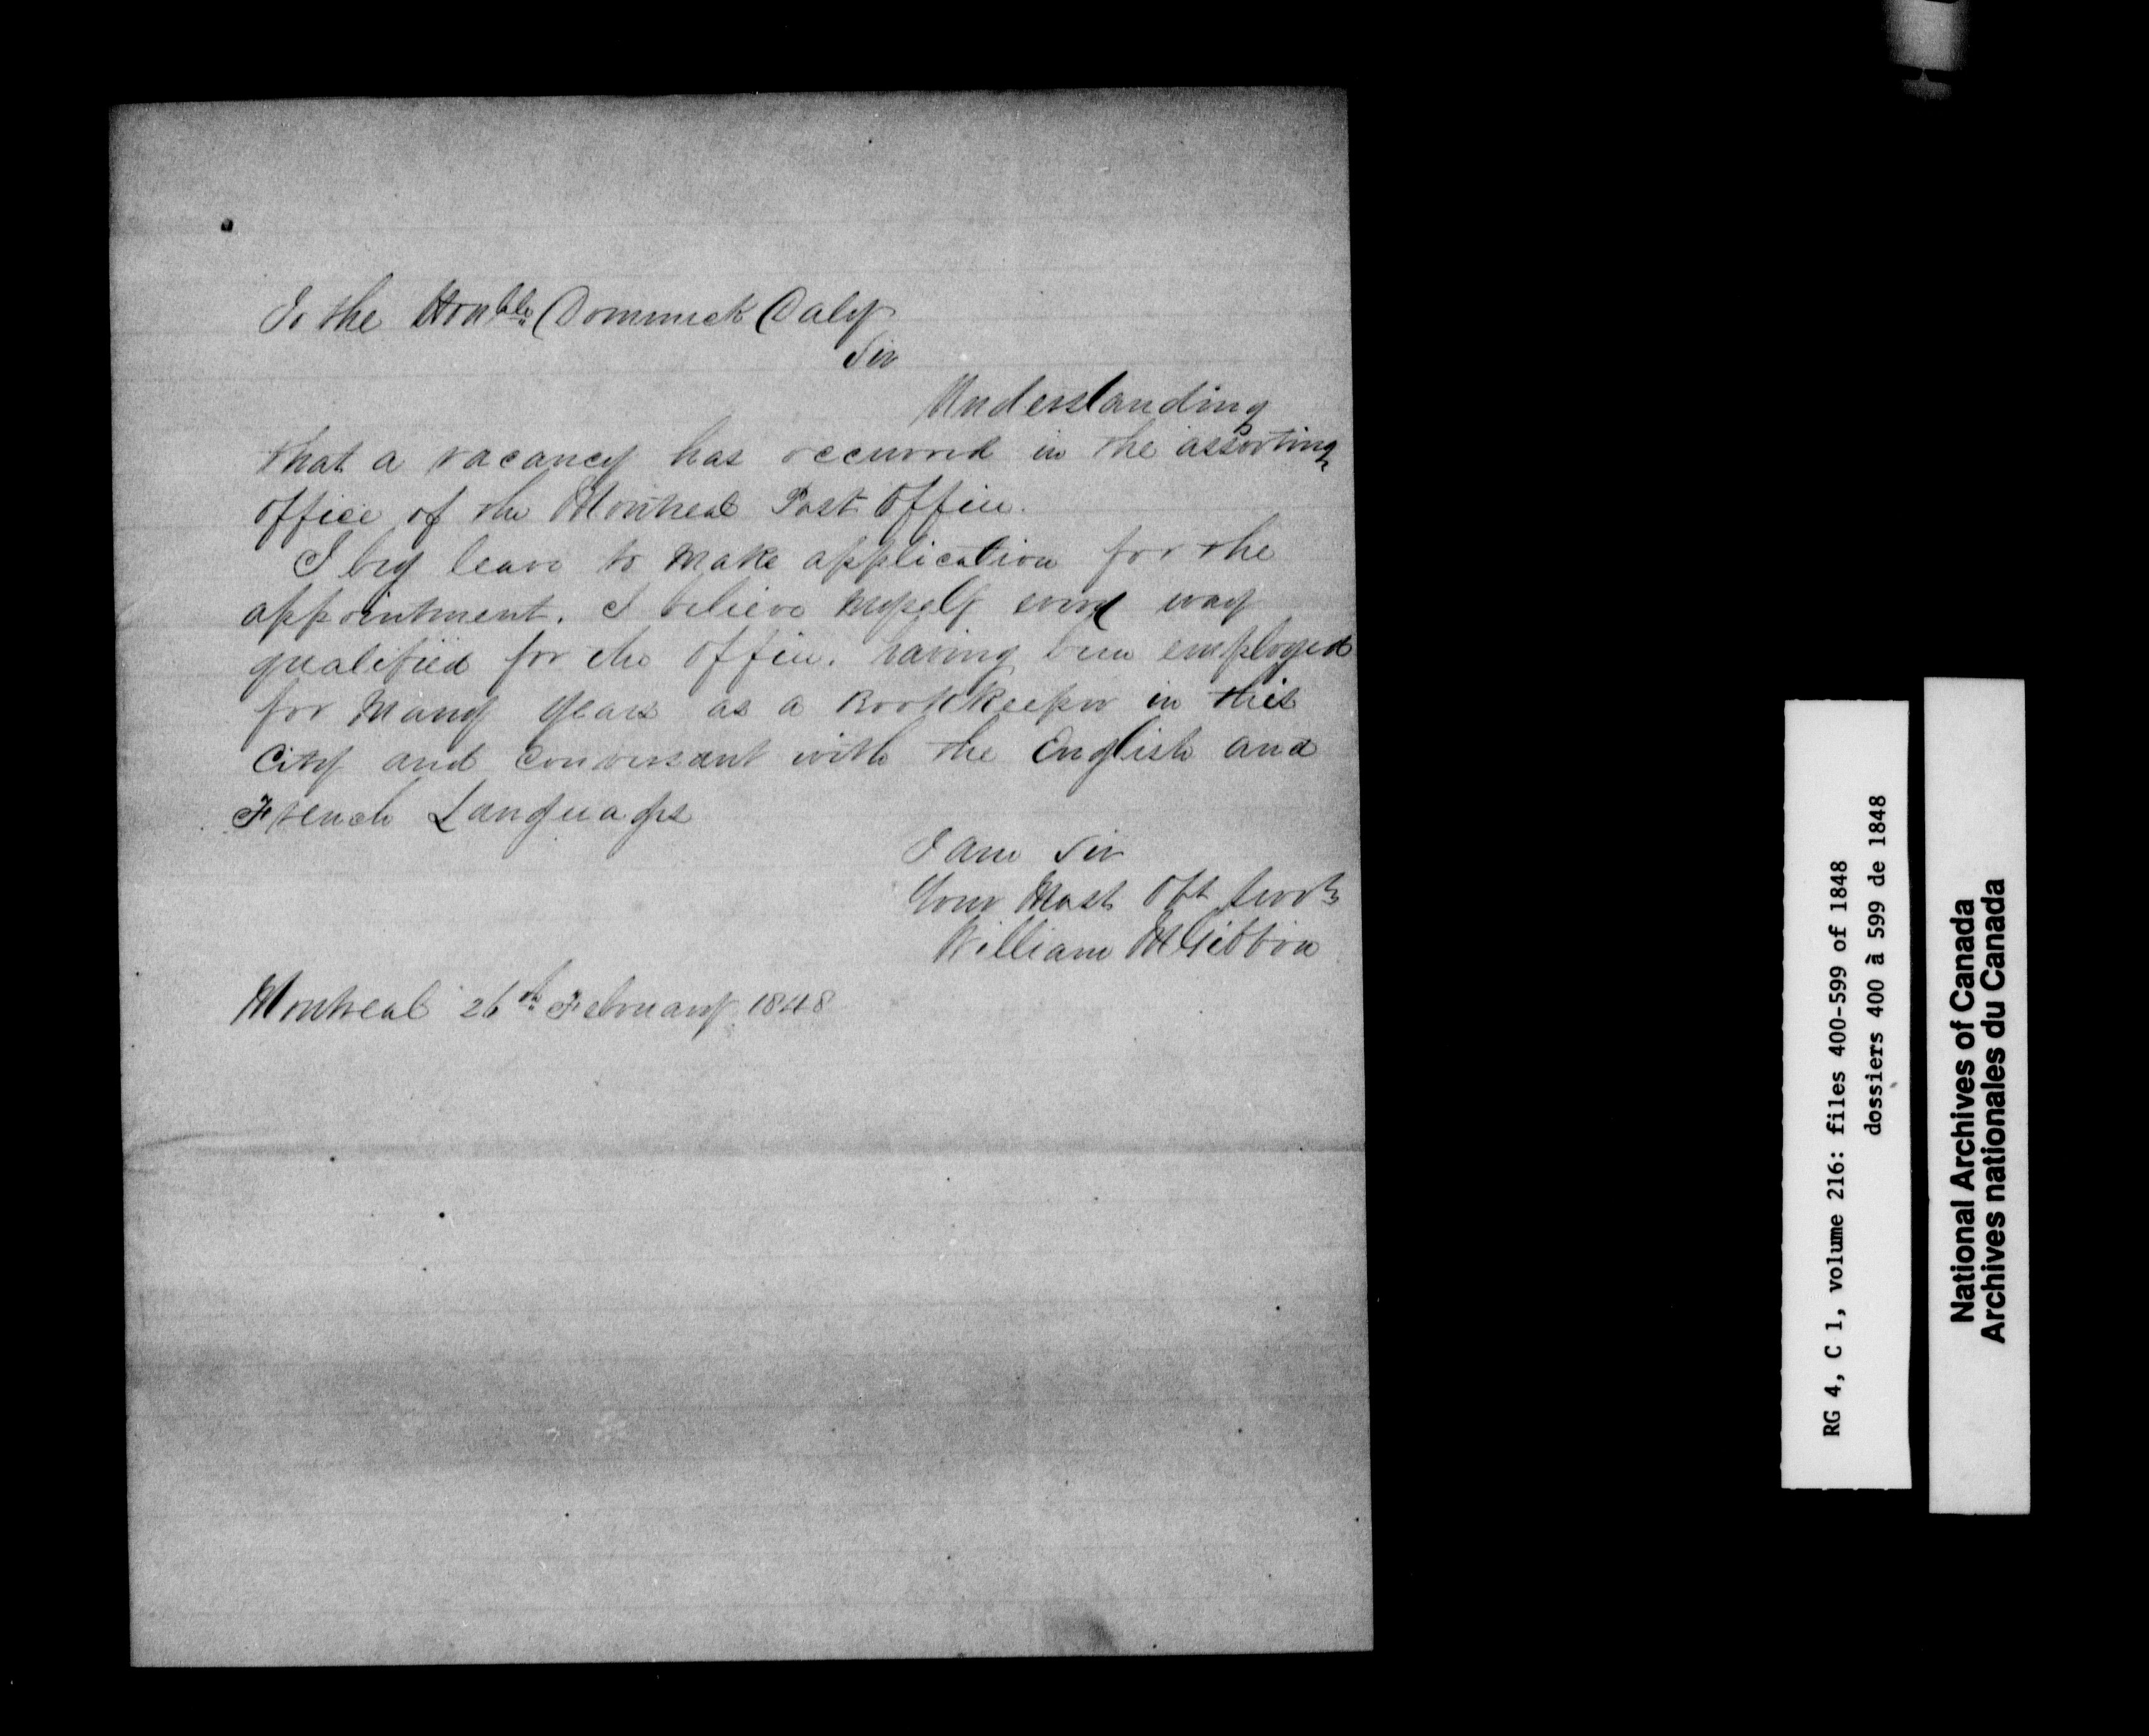 To the Honble Dominick Daly
Sir
Understanding
that a vacancy has occurred in the assorting
office of the Montreal Post Office.
I beg leave to make application for the
appointment. I believe myself every way
qualified for the office. having been employed
for many years as a Bookkeeper in this
City and conversant with the English and
French Languages
I am Sir
Your Most Obt Servt
William McGibbon
Montreal 26th February 1848
RG 4, C 1, volume 216: files 400-599 of 1848
dossiers 400 à 599 de 1848
National Archives of Canada
Archives nationales du Canada